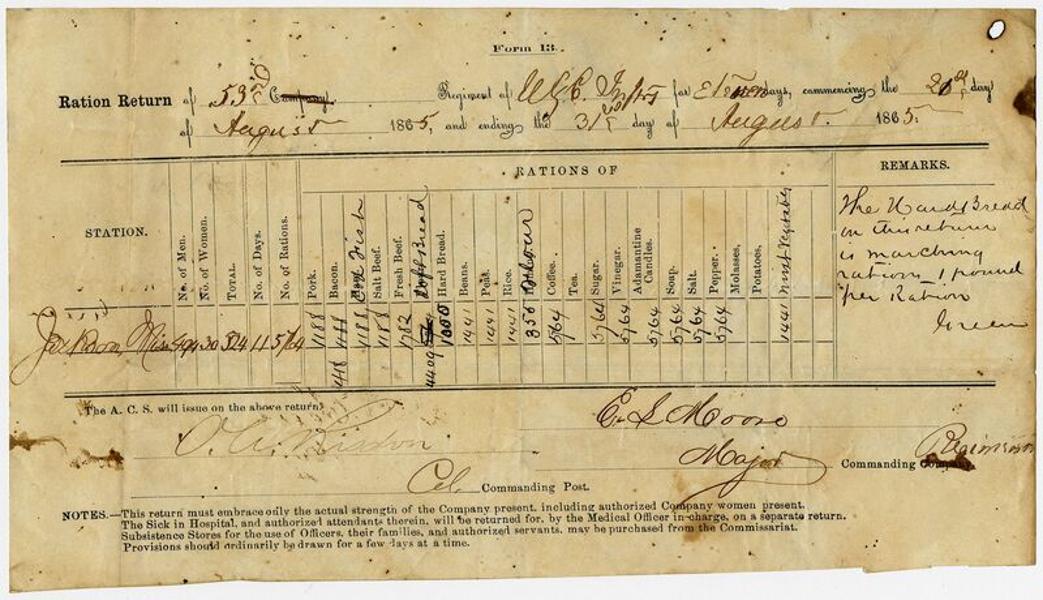 Form 13.
Ration Return of 53rd Company. Regiment of U.S.C. Inft'y for Eleven days, commencing the 21st day
of August 1865, and ending the 31st day of August. 1865.
RATIONS OF
REMARKS.
STATION.
No. of Men.
No. of Women.
TOTAL.
No. of Days.
No. of Rations.
Pork.
Bacon.
Fish
Salt Beef.
Fresh Beef.
Soft Bread
Hard Bread.
Beans.
Peas.
Rice.
Coffee.
Tea.
Sugar.
Vinegar.
Adamantine Candles.
Soap.
Salt.
Pepper.
Molasses,
Potatoes.
Vegetables
Jackson, Miss 494 30 524 11 5764 1188 1188 1188 1782 1000 1441 1441 1441 350 564 5764 5764 5764 5764 5764 5764 1441
4409
The Hard Bread
on this return
is marching
rations 1 pound
per Ration
Green
The A. C. S. will issue on the above return.
E. S. Moore
Major Commanding
Col. Commanding Post.
NOTES.—This return must embrace only the actual strength of the Company present, including authorized Company women present.
The Sick in Hospital, and authorized attendants therein, will be returned for, by the Medical Officer in-charge, on a separate return.
Subsistence Stores for the use of Officers, their families, and authorized servants, may be purchased from the Commissariat.
Provisions should ordinarily be drawn for a few days at a time.